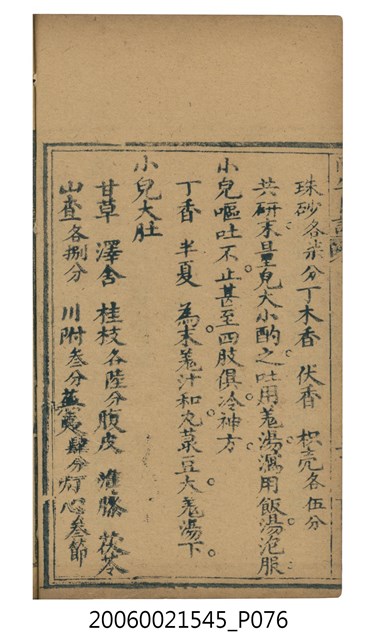 珠砂各米分丁木香 伏香 枳壳各伍分
共研末量兒大小酌之吐用羗湯瀉用飯湯泡服
小兒嘔吐不止甚至四肢俱冷神方
丁香 半夏 為末羗汁和丸菉豆大羗湯下
小兒大肚
甘草 澤舍 桂枝各陸分腹皮 淮 茯苓
山查各捌分 川附叁分蕪荑肆分灯心叁節
20060021545_P076